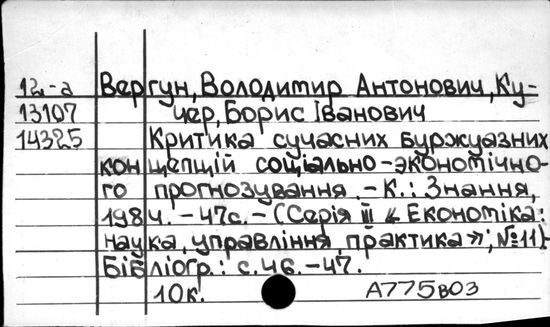 12-а Вергун, Володимир Антонович, Ку-
13107 чер, Борис Іванович
14325 Критика сучасних буржуазних
концепцій соціально-экономічно-
го прогнозування. - К.: Знання,
1984. - 47с. - (Серія III « Економіка:
наука, управління, практика»; №11)-
Бібліогр.: с.46.-47.
10к. А775в03